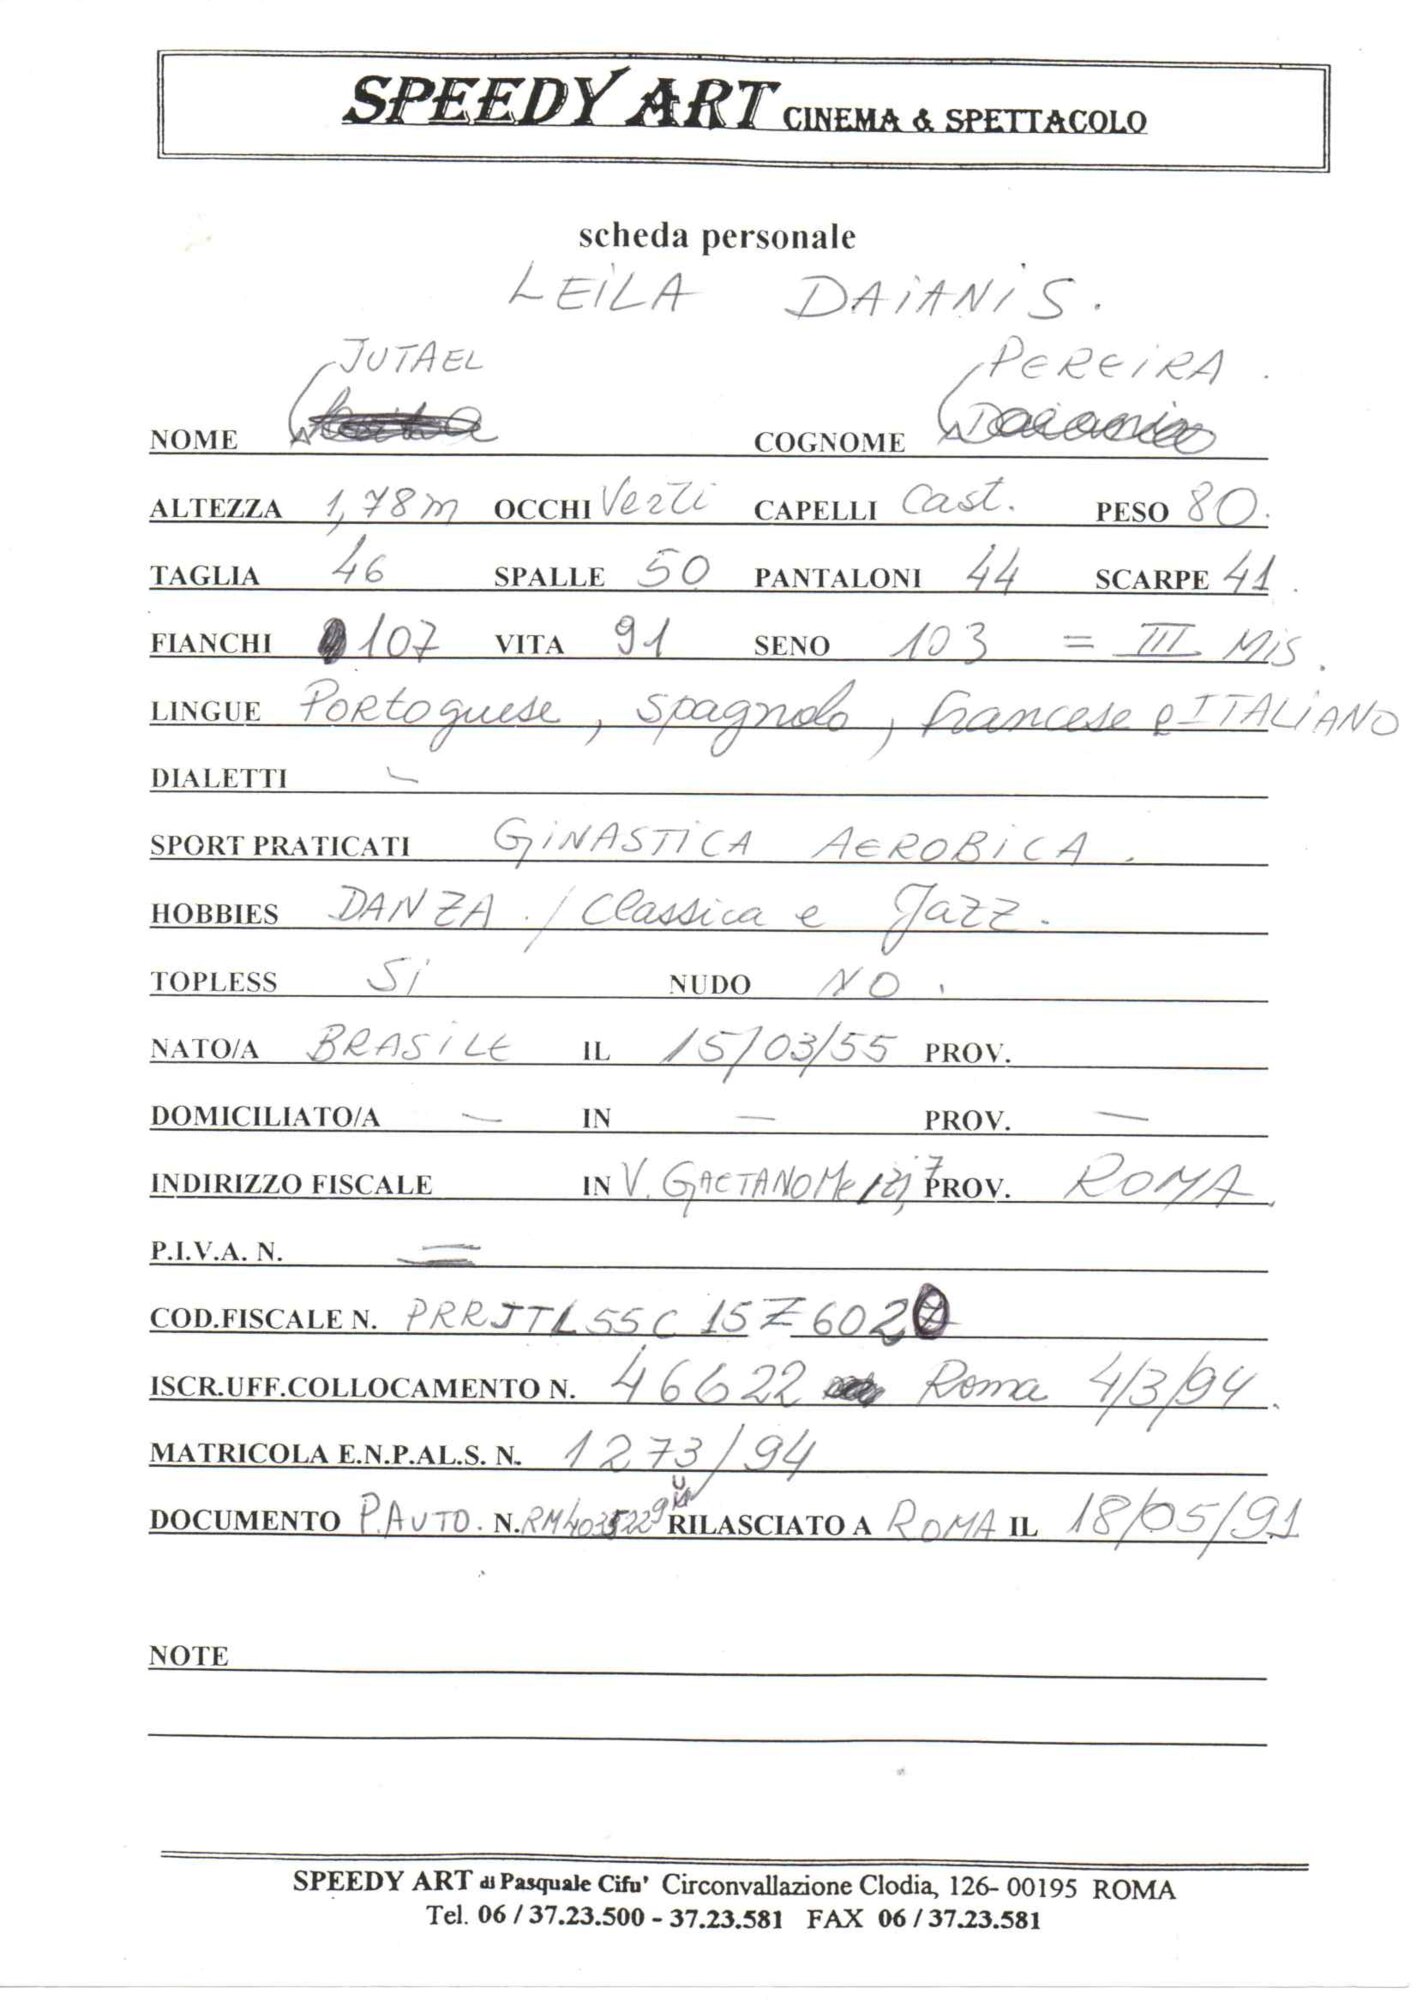 SPEEDY ART CINEMA & SPETTACOLO
scheda personale
LEILA DAIANIS.
JUTAEL PEREIRA.
NOME COGNOME Daianis
ALTEZZA 1,78m OCCHI Verti CAPELLI Cast. PESO 80.
TAGLIA 46 SPALLE 50 PANTALONI 44 SCARPE 41.
FIANCHI 107 VITA 91 SENO 103 = III MIS.
LINGUE Portoguese, spagnolo, francese e ITALIANO
DIALETTI -
SPORT PRATICATI GINASTICA AEROBICA.
HOBBIES DANZA. / Classica e Jazz.
TOPLESS Si NUDO NO.
NATO/A BRASILE IL 15/03/55 PROV.
DOMICILIATO/A - IN - PROV. -
INDIRIZZO FISCALE IN V. GAETANO 7 PROV. ROMA
P.I.V.A. N. =
COD.FISCALE N. PRRJTL55C15Z602
ISCR.UFF.COLLOCAMENTO N. 46622 Roma 4/3/94.
MATRICOLA E.N.P.AL.S. N. 1273/94
DOCUMENTO P.AUTO. N. RILASCIATO A ROMA IL 18/05/91
NOTE
SPEEDY ART di Pasquale Cifu' Circonvallazione Clodia, 126- 00195 ROMA
Tel. 06 / 37.23.500 - 37.23.581 FAX 06 / 37.23.581